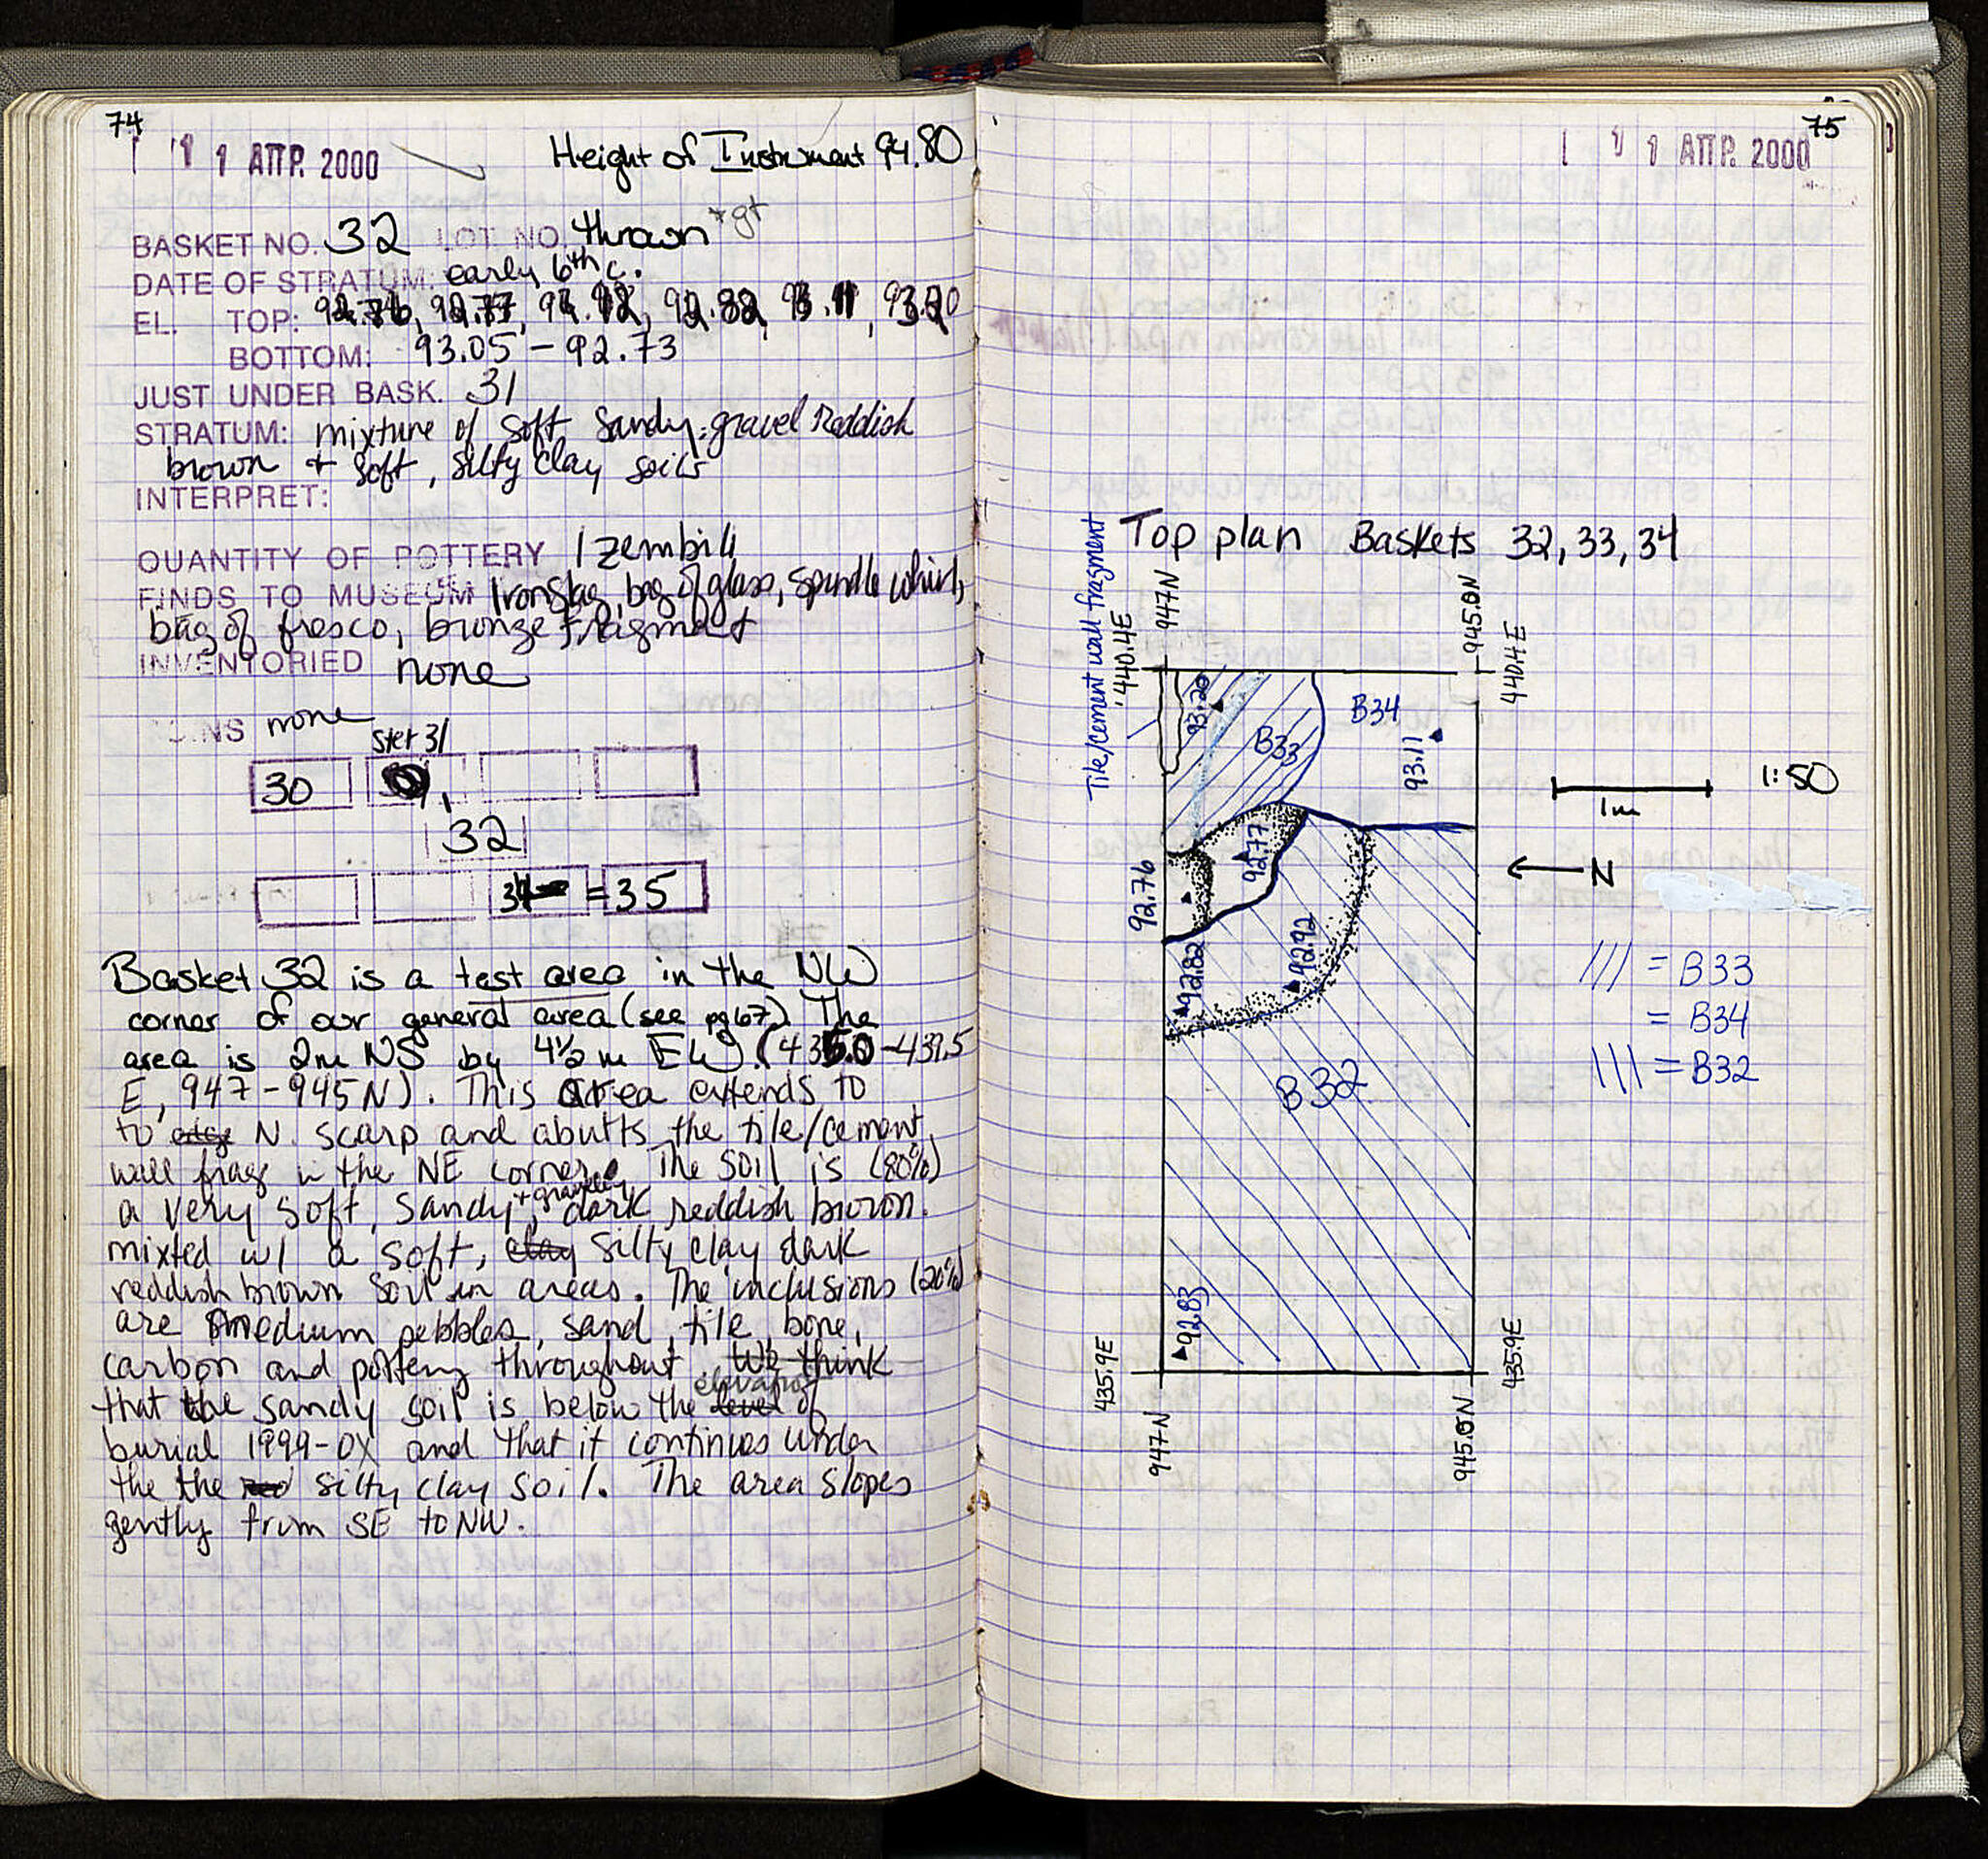 74
1 1 ΑΠΡ. 2000
Height of Instrument 94.80
BASKET NO. 32 LOT NO. thrown + gt
DATE OF STRATUM: early 6th c.
EL. TOP: 92.76, 92.77, 92.92, 92.82, 93.11, 93.20
BOTTOM: 93.05 - 92.73
JUST UNDER BASK. 31
STRATUM: mixture of soft sandy, gravel reddish
brown + soft, silty clay soils
INTERPRET:
QUANTITY OF POTTERY 1 zembili
FINDS TO MUSEUM Iron slag, bag of glass, spindle whirl,
bag of fresco, bronze fragment
INVENTORIED none
none
ster 31
30
32
34 = 35
Basket 32 is a test area in the NW
corner of our general area (see pg 67) The
area is 2m NS by 4½ m EW. (435.0-439.5
E, 947-945N). This area extends to
to edge N. scarp and abutts the tile/cement
wall frag in the NE corner. The soil is (80%)
a very soft, sandy, + gravelly dark reddish brown.
mixted w/ a soft, clay silty clay dark
reddish brown soil in areas. The inclusions (20%)
are medium pebbles, sand, tile, bone,
carbon and pottery throughout. We think
that the sandy soil is below the level elevation of
burial 1999-0X and that it continues under
the the red silty clay soil. The area slopes
gently from SE to NW.
75
1 1 ΑΠΡ. 2000
Top plan Baskets 32, 33, 34
Tile/cement wall fragment
440.4E
947N
945.0N
440.4E
93.20
B33
B34
93.11
1:50
1m
92.77
92.76
N
92.82
92.92
/// = B33
= B34
\\\ = B32
B32
92.83
435.9E
435.9E
947N
945.0N